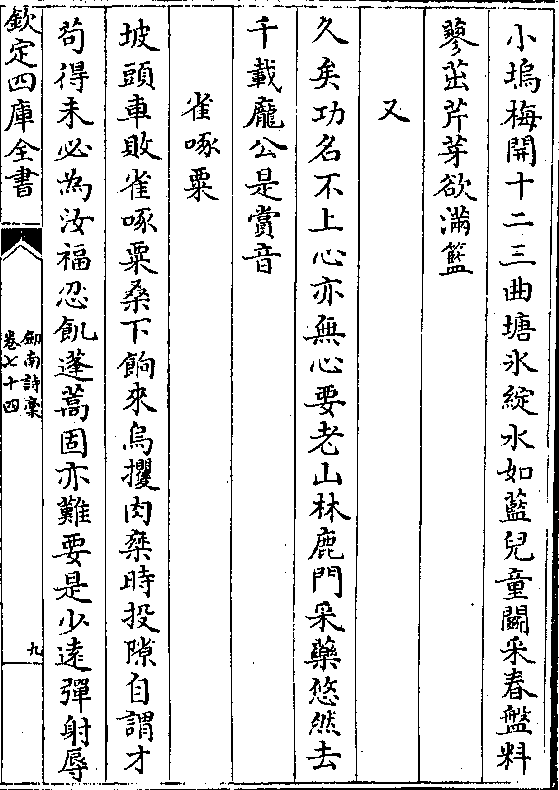 小塢梅開十二三曲塘氷綻水如藍兒童鬭采春盤料
蓼茁芹芽欲滿籃
又
久矣功名不上心亦無心要老山林鹿門采藥悠然去
千載龐公是賞音
雀啄粟
坡頭車敗雀啄粟桑下餉來烏攫肉乗時投隙自謂才
苟得未必為汝福忍飢蓬蒿固亦難要是少逺彈射辱
欽定四庫全書
劒南詩稾
卷七十四
九